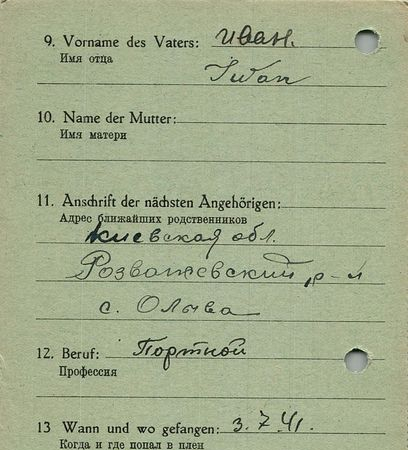 9. Vorname des Vaters: Иван.
Имя отца
Iwan
10. Name der Mutter:
Имя матери
11. Anschrift der nächsten Angehörigen:
Адрес ближайших родственников
Киевская обл.
Розважевский р-н
с. Олыва
12. Beruf: Портной
Профессия
13 Wann und wo gefangen: 3.7.41.
Когда и где попал в плен